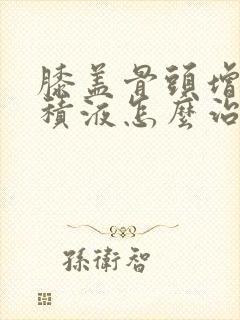 膝盖骨頭增
積液怎麼治
孫衛智